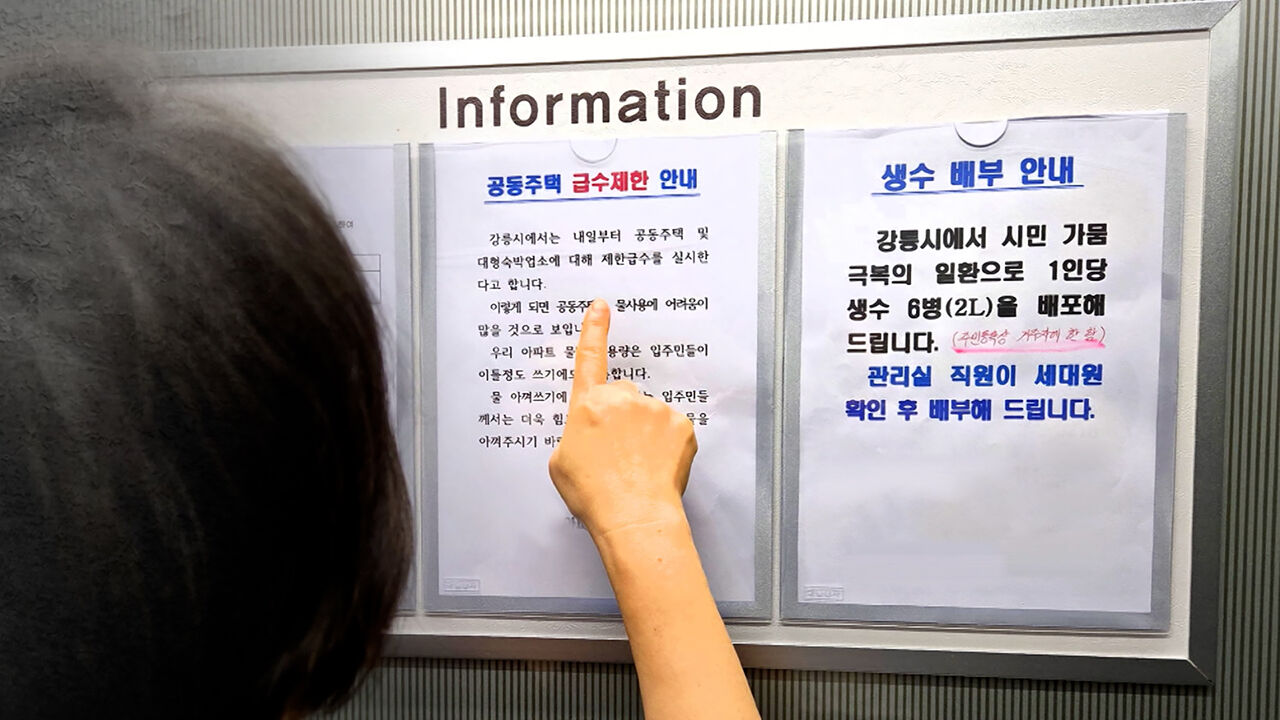 Information
공동주택 급수제한 안내
강릉시에서는 내일부터 공동주택 및
대형숙박업소에 대해 제한급수를 실시한
다고 합니다.
이렇게 되면 물사용에 어려움이
많을 것으로
우리 아파트 입주민들이
이틀정도
물 아껴쓰기에 입주민들
께서는 더욱
아껴주시기
생수 배부 안내
강릉시에서 시민 가뭄
극복의 일환으로 1인당
생수 6병(2L)을 배포해
드립니다. (주민등록상 거주자에 한 함)
관리실 직원이 세대원
확인 후 배부해 드립니다.